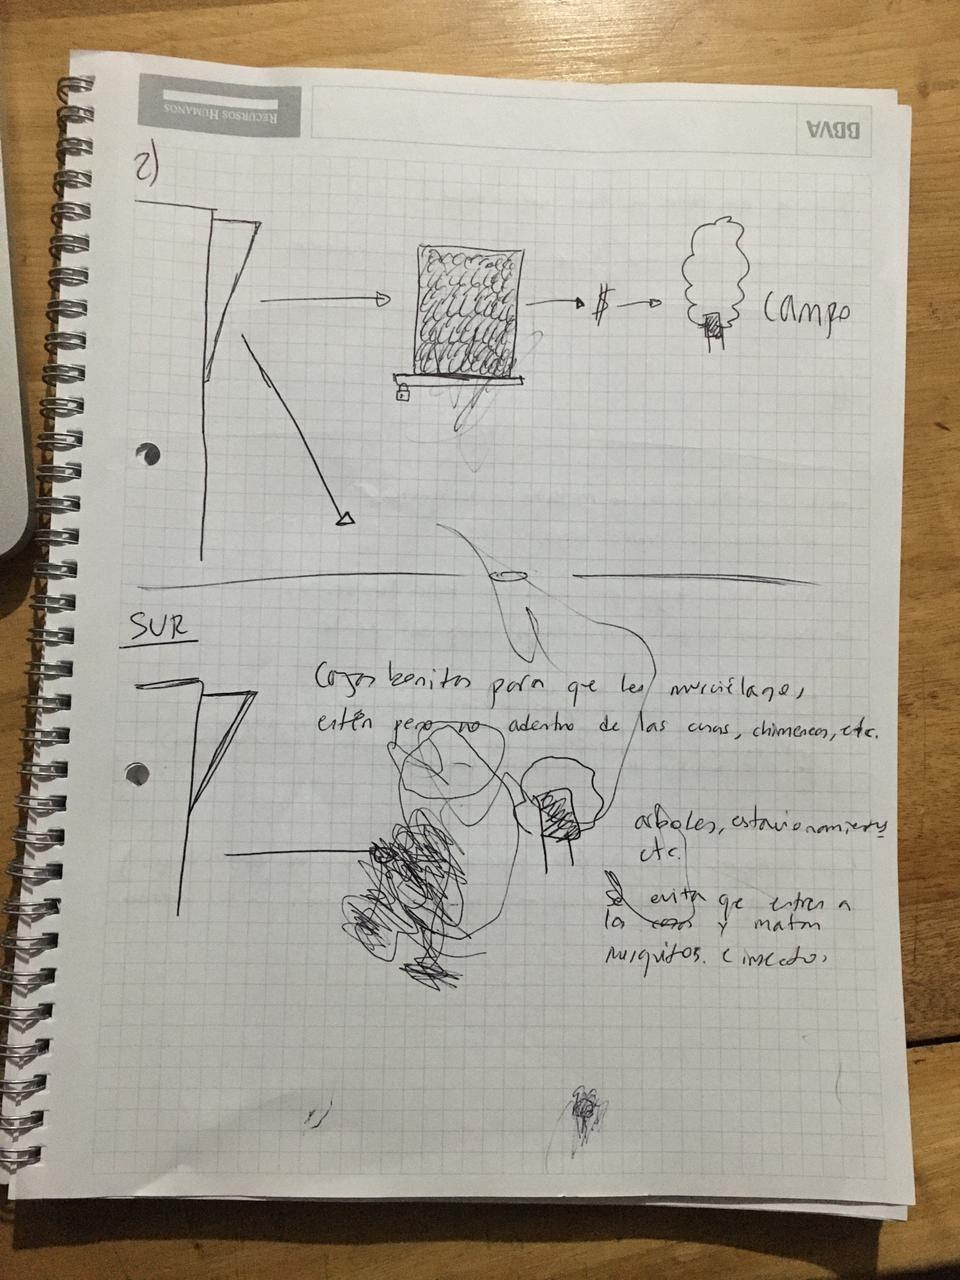 RECURSOS HUMANOS
BBVA
2)
$
campo
SUR
Cajas bonitas para que los murciélagos,
estén pero no adentro de las casas, chimeneas, etc.
arboles, estacionamientos
etc.
Se evita que entren a
las casas y matan
musquitos. e insectos